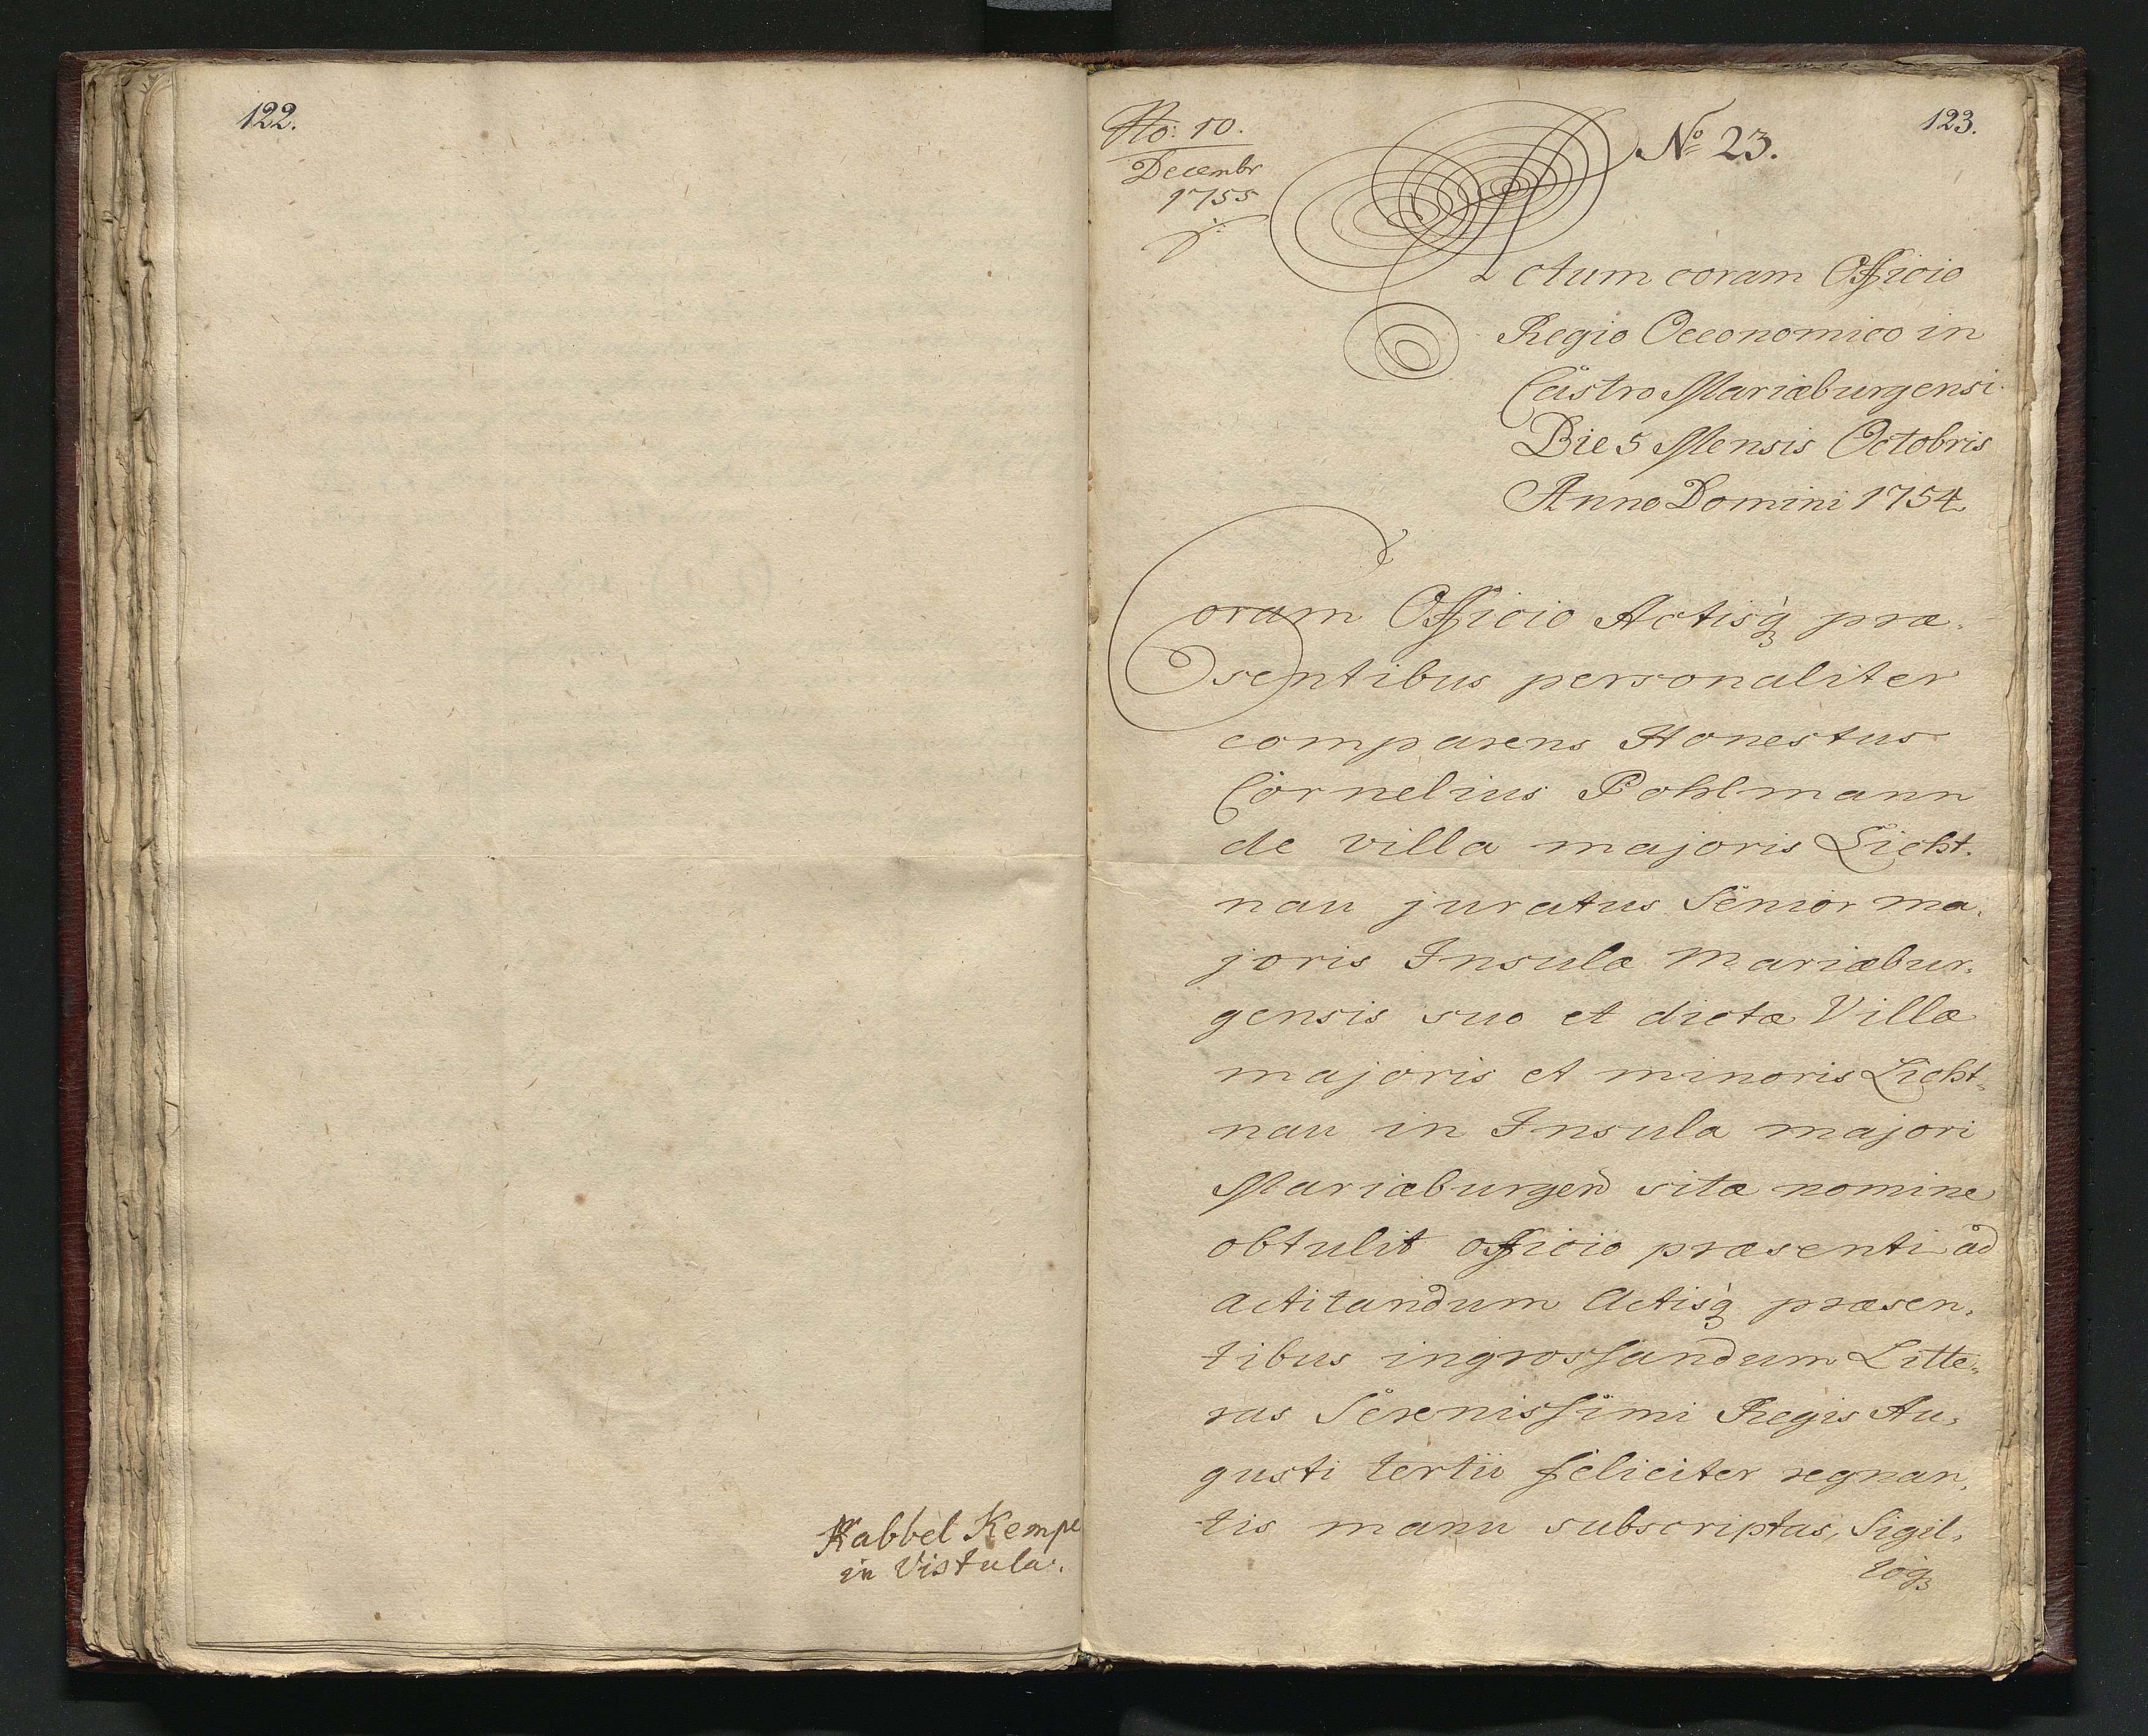 122.
Kabbel Kempe
in Vistula.
No: 10.
Decembr
1755
No 23.
123.
Actum coram Officio
Regio Oeconomico in
Castro Mariæburgensi
Die 5 Mensis Octobris
Anno Domini 1754
Coram Officio Actisq præ-
sentibus personaliter
comparens Honestus
Cornelius Pohlmann
de villa majoris Licht-
nau juratus Senior ma-
joris Insulæ Mariæbur-
gensis suo et dictæ Villæ
majoris et minoris Licht-
nau in Insula majori
Mariæburgen sitæ nomine
obtulit officio præsenti ad
actitandum Actisq præsen-
tibus ingrossandum Litte-
ras Serenissimi Regis Au-
gusti tertii feliciter regnan-
tis manu subscriptas, Sigil-
loq